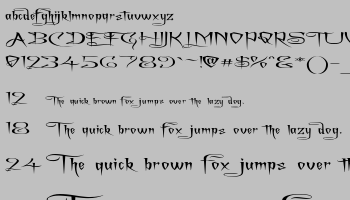 abcdefghijklmnopqrstuvwxyz
ABCDEFGHIJKLMNOPQRSTUV
0123456789`~!@#$%^&*()-
12 The quick brown fox jumps over the lazy dog.
18 The quick brown fox jumps over the lazy dog.
24 The quick brown fox jumps over the